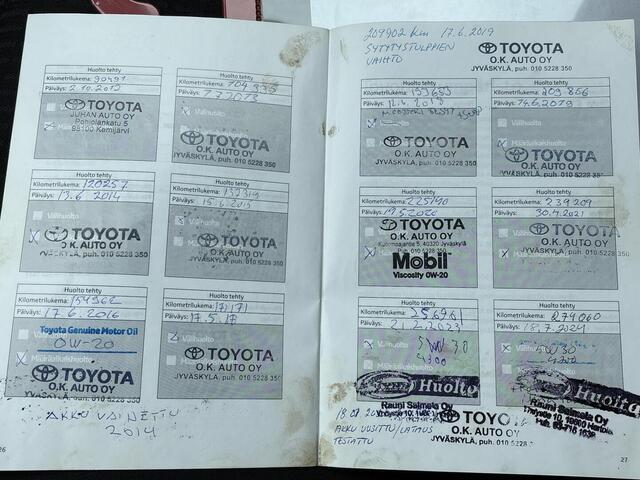 Huolto tehty
Kilometrilukema: 90491
Päiväys: 2.10.2012
TOYOTA
JUHAN AUTO OY
Pohjolankatu 5
98100 Kemijärvi
Huolto tehty
Kilometrilukema: 104
Päiväys: 7.7.2013
TOYOTA
O.K. AUTO OY
JYVÄSKYLÄ, puh. 010 5228 350
Huolto tehty
Kilometrilukema: 120257
Päiväys: 13.6 2014
TOYOTA
O.K. AUTO OY
JYVÄSKYLÄ, puh. 010 5228 350
Huolto tehty
Kilometrilukema: 132319
Päiväys: 15.6.2015
TOYOTA
O.K. AUTO OY
JYVÄSKYLÄ, puh. 010 5228 350
Huolto tehty
Kilometrilukema: 154962
Päiväys: 17.6.2016
Toyota Genuine Motor Oil
0W-20
Määräaikaishuolto
TOYOTA
O.K. AUTO OY
JYVÄSKYLÄ, puh. 010 5228 350
Huolto tehty
Kilometrilukema: 171171
Päiväys: 17.5.17
TOYOTA
O.K. AUTO OY
JYVÄSKYLÄ, puh. 010 5228 350
AKKU VAIHETTU
2014
26
209902 km 17.6.2019
SYTYTYSTULPPIEN
VAIHTO
TOYOTA
O.K. AUTO OY
JYVÄSKYLÄ, puh. 010 5228 350
Huolto tehty
Kilometrilukema: 193653
Päiväys: 12.6.2018
TOYOTA
O.K. AUTO OY
JYVÄSKYLÄ, puh. 010 5228 350
Huolto tehty
Kilometrilukema: 209 856
Päiväys: 14.6.2019
Välihuolto
TOYOTA
O.K. AUTO OY
JYVÄSKYLÄ, puh. 010 5228 35
Huolto tehty
Kilometrilukema: 225190
Päiväys: 19.5.2020
TOYOTA
O.K. AUTO OY
40320 Jyväskylä
Mobil
Viscosity 0W-20
Huolto tehty
Kilometrilukema: 239209
Päiväys: 30.4.2021
TOYOTA
O.K. AUTO OY
JYVÄSKYLÄ, puh. 010 5228 350
Huolto tehty
Kilometrilukema: 256961
Päiväys: 21.2.2023
5W30
4300
Huolto
Rauni Salmela Oy
Huolto tehty
Kilometrilukema: 274060
Päiväys: 18.7.2024
5W30
Huolto
Rauni Salmela Oy
AKKU UUSITTU/LATAUS
TESTATTU
TOYOTA
O.K. AUTO OY
JYVÄSKYLÄ, puh. 010 5228 350
27